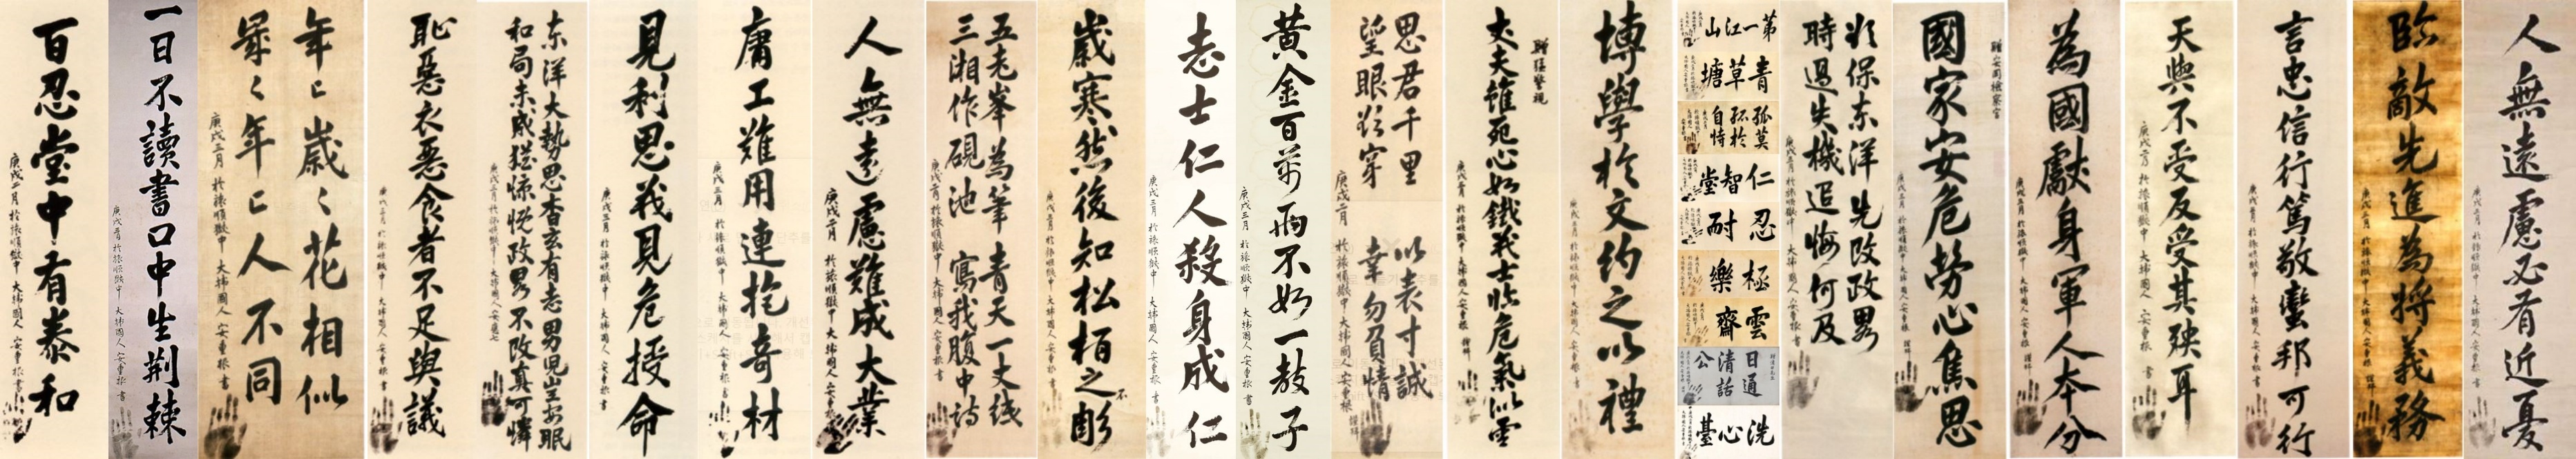 百忍堂中有泰和
庚戌二月 於旅順獄中 大韓國人 安重根 書
一日不讀書口中生荊棘
庚戌三月 於旅順獄中 大韓國人 安重根 書
年〻歲〻花相似
歲〻年〻人不同
庚戌三月 於旅順獄中 大韓國人 安重根 書
恥惡衣惡食者不足與議
庚戌三月 於旅順獄中 大韓國人 安重根 書
東洋大勢思杳玄有志男児豈安眠
和局未成猶慷慨政畧不改真可憐
庚戌三月 於旅順獄中 大韓國人 安重根 書
見利思義見危授命
庚戌三月 於旅順獄中 大韓國人 安重根 書
庸工難用連抱奇材
庚戌三月 於旅順獄中 大韓國人 安重根 書
人無遠慮難成大業
庚戌二月 於旅順獄中 大韓國人 安重根 書
五老峯為筆 青天一丈紙
三湘作硯池 寫我腹中詩
庚戌二月 於旅順獄中 大韓國人 安重根 書
歲寒然後知松栢之不彫
庚戌二月 於旅順獄中 大韓國人 安重根 書
志士仁人殺身成仁
庚戌三月 於旅順獄中 大韓國人 安重根 書
黄金百萬両不如一敎子
庚戌三月 於旅順獄中 大韓國人 安重根 書
思君千里 以表寸誠
望眼欲穿 幸勿負情
庚戌二月 於旅順獄中 大韓國人 安重根 謹拜
贈猛警視
丈夫雖死心如鐵義士臨危氣似雲
庚戌三月 於旅順獄中 大韓國人 安重根 謹拜
博學於文約之以禮
庚戌三月 於旅順獄中 大韓國人 安重根 書
第一江山
青草塘
孤莫孤於自恃
仁智堂
忍耐
極樂
雲齋
日通清話公
洗心臺
欲保東洋先改政畧
時過失機追悔何及
庚戌三月 於旅順獄中 大韓國人 安重根 書
贈安岡檢察官
國家安危勞心焦思
庚戌三月 於旅順獄中 大韓國人 安重根 謹拜
為國獻身軍人本分
庚戌三月 於旅順獄中 大韓國人 安重根 謹拜
天與不受反受其殃耳
庚戌二月 於旅順獄中 大韓國人 安重根 書
言忠信行篤敬蠻邦可行
庚戌三月 於旅順獄中 大韓國人 安重根 書
臨敵先進為將義務
庚戌三月 於旅順獄中 大韓國人 安重根 謹拜
人無遠慮必有近憂
庚戌三月 於旅順獄中 大韓國人 安重根 書